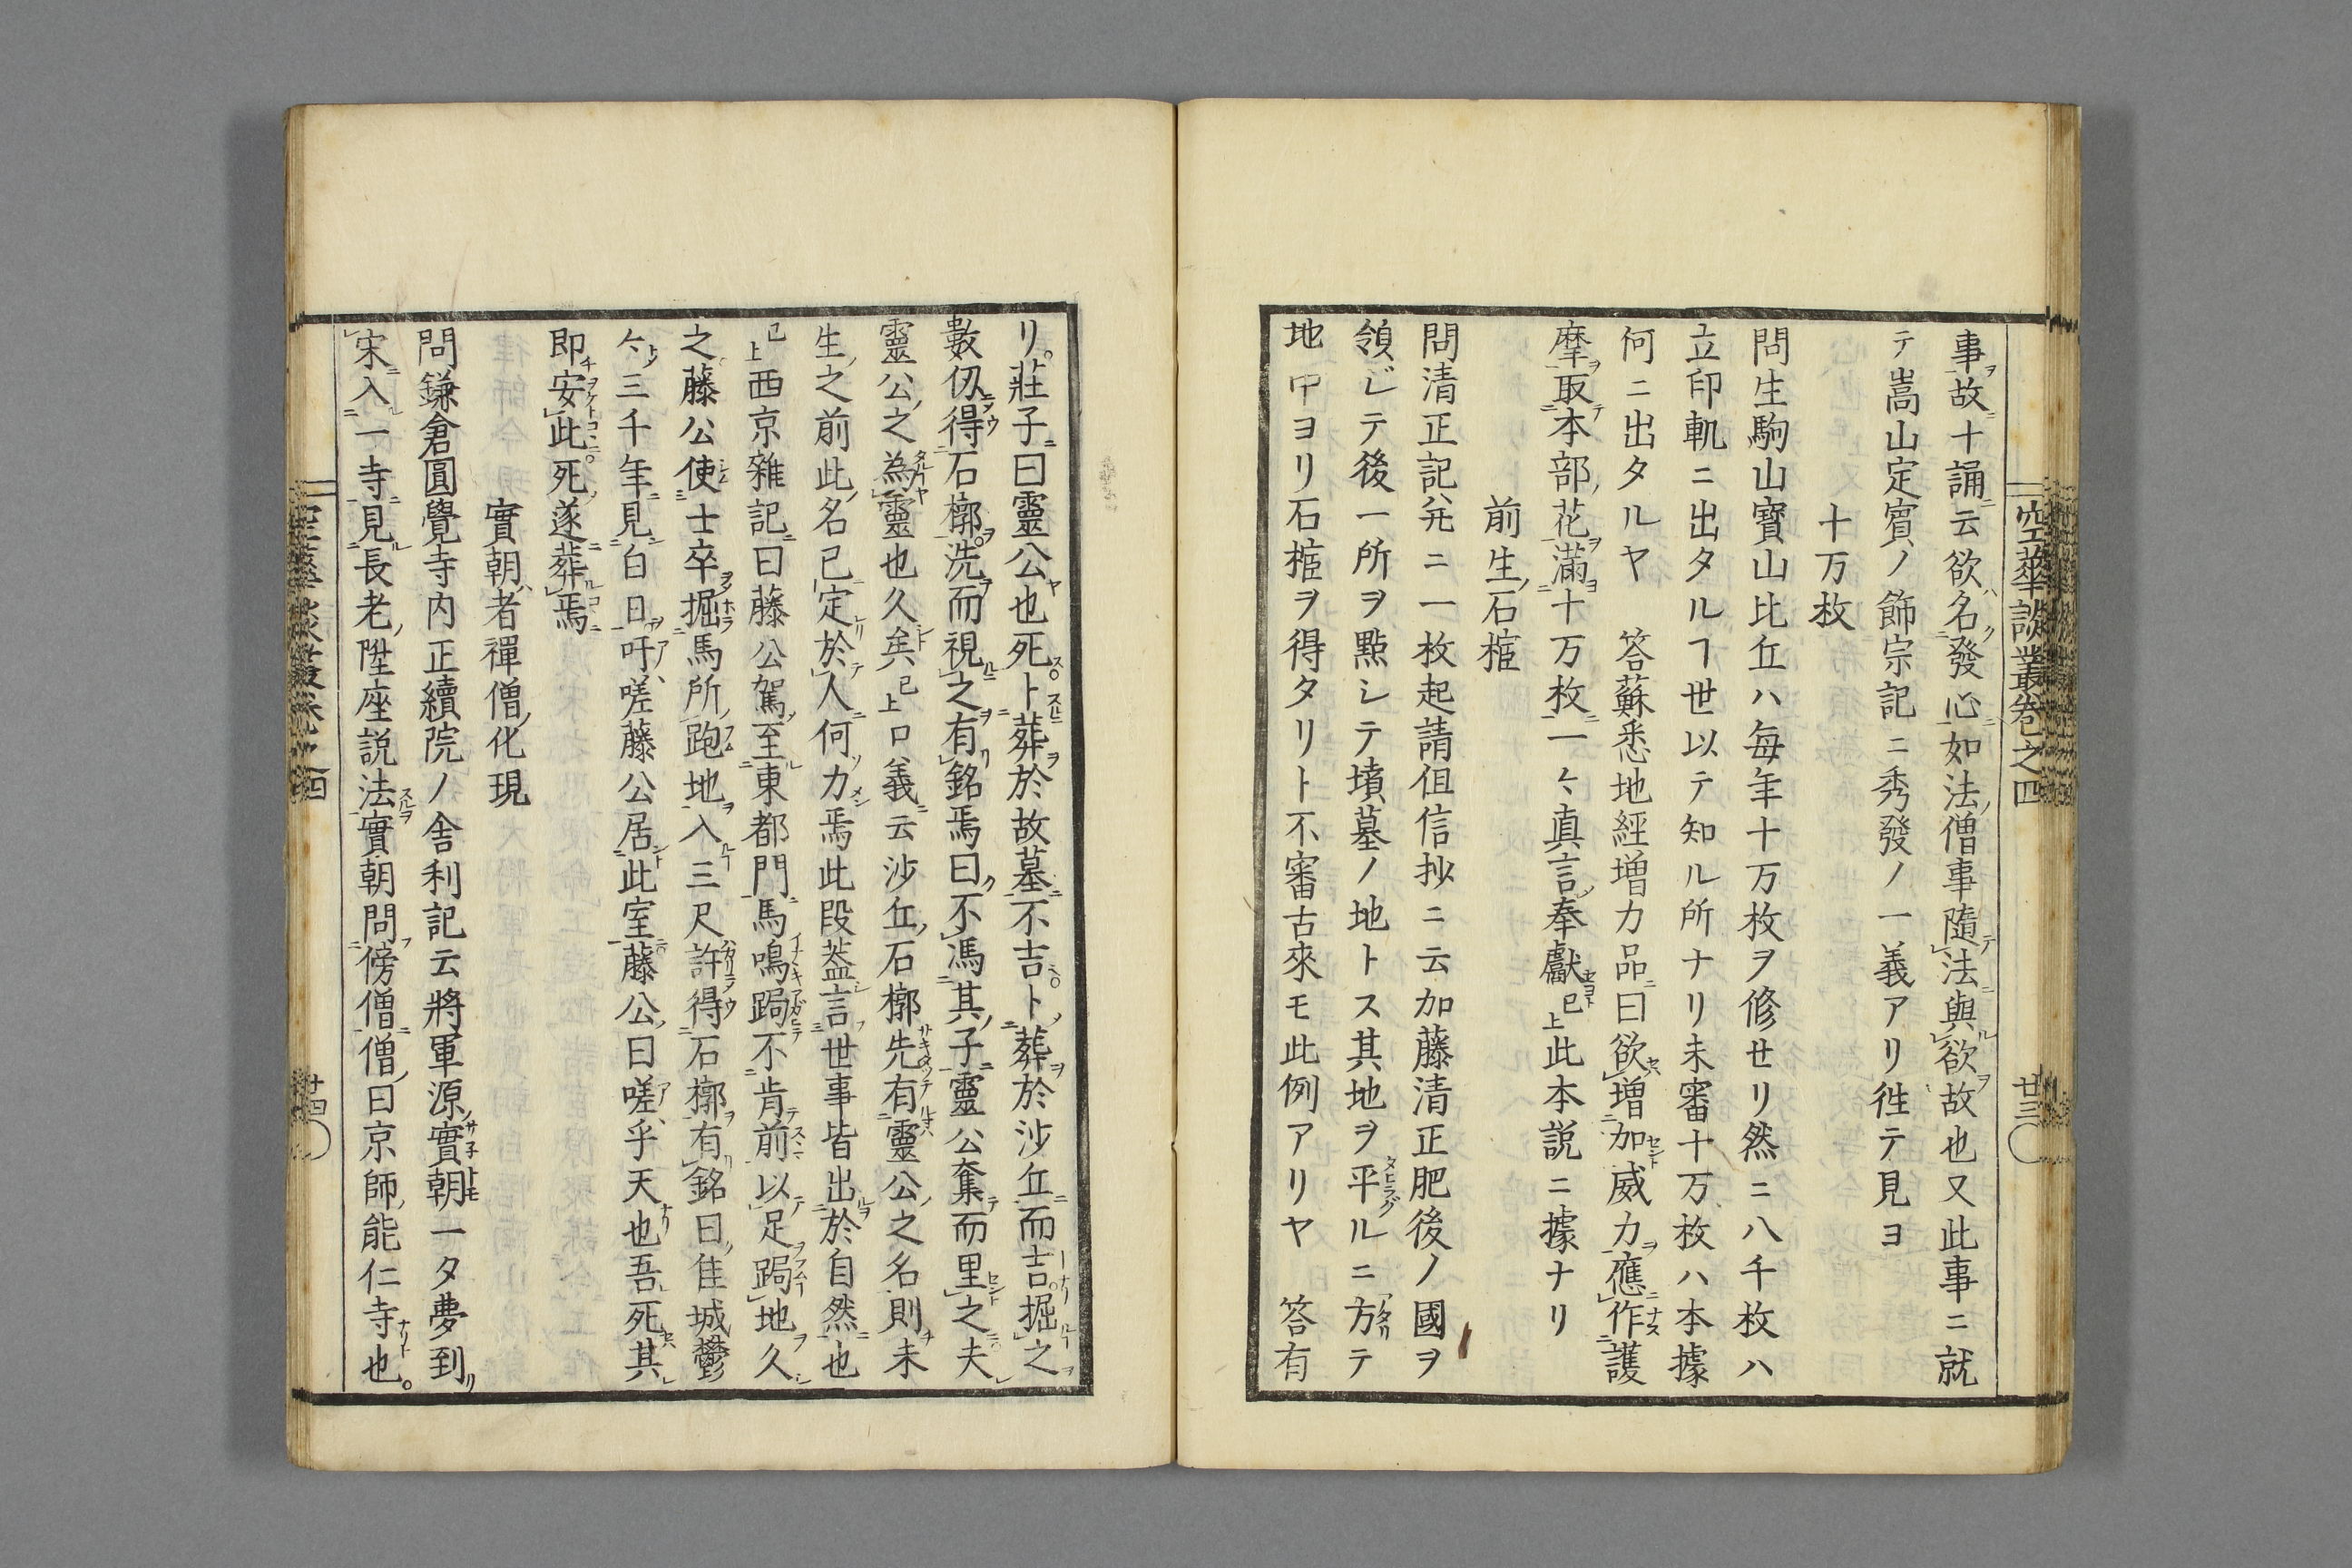 空華談叢卷之四
廿三
事故十誦云欲名發心如法僧事隨法與欲故也又此事ニ就
テ嵩山定賓ノ飾宗記ニ秀發ノ一義アリ徃テ見ヨ
十万枚
問生駒山寶山比丘ハ毎年十万枚ヲ修セリ然ニ八千枚ハ
立印軌ニ出タルヿ世以テ知ル所ナリ未審十万枚ハ本據
何ニ出タルヤ 答蘇悉地經增力品曰欲增加威力應作護
摩取本部花滿十万枚一々真言奉獻已上此本説ニ據ナリ
前生石椁
問清正記弁ニ一枚起請但信抄ニ云加藤清正肥後ノ國ヲ
領シテ後一所ヲ點シテ墳墓ノ地トス其地ヲ平ルニ方テ
地中ヨリ石椁ヲ得タリト不審古來モ此例アリヤ 答有
リ莊子曰靈公也死卜葬於故墓不吉卜葬於沙丘而吉掘之
數仭得石槨洗而視之有銘焉曰不馮其子靈公奪而里之夫
靈公之為靈也久矣已上口義云沙丘石槨先有靈公之名則未
生之前此名已定於人何力焉此段葢言世事皆出於自然也
已上西京雜記曰藤公駕至東都門馬鳴跼不肯前以足跼地久
之藤公使士卒掘馬所跑地入三尺許得石槨有銘曰佳城鬱
々三千年見白日吁嗟藤公居此室藤公曰嗟乎天也吾死其
即安此死遂葬焉
實朝者禪僧化現
問鎌倉圓覺寺内正續院ノ舍利記云將軍源實朝一夕夢到
宋入一寺見長老陞座説法實朝問傍僧僧曰京師能仁寺也
空華談叢卷之四
廿四